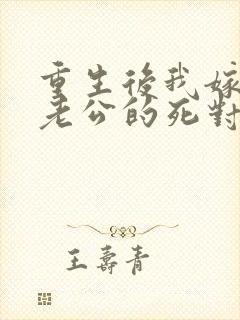 重生後我嫁
老公的死對
王壽青